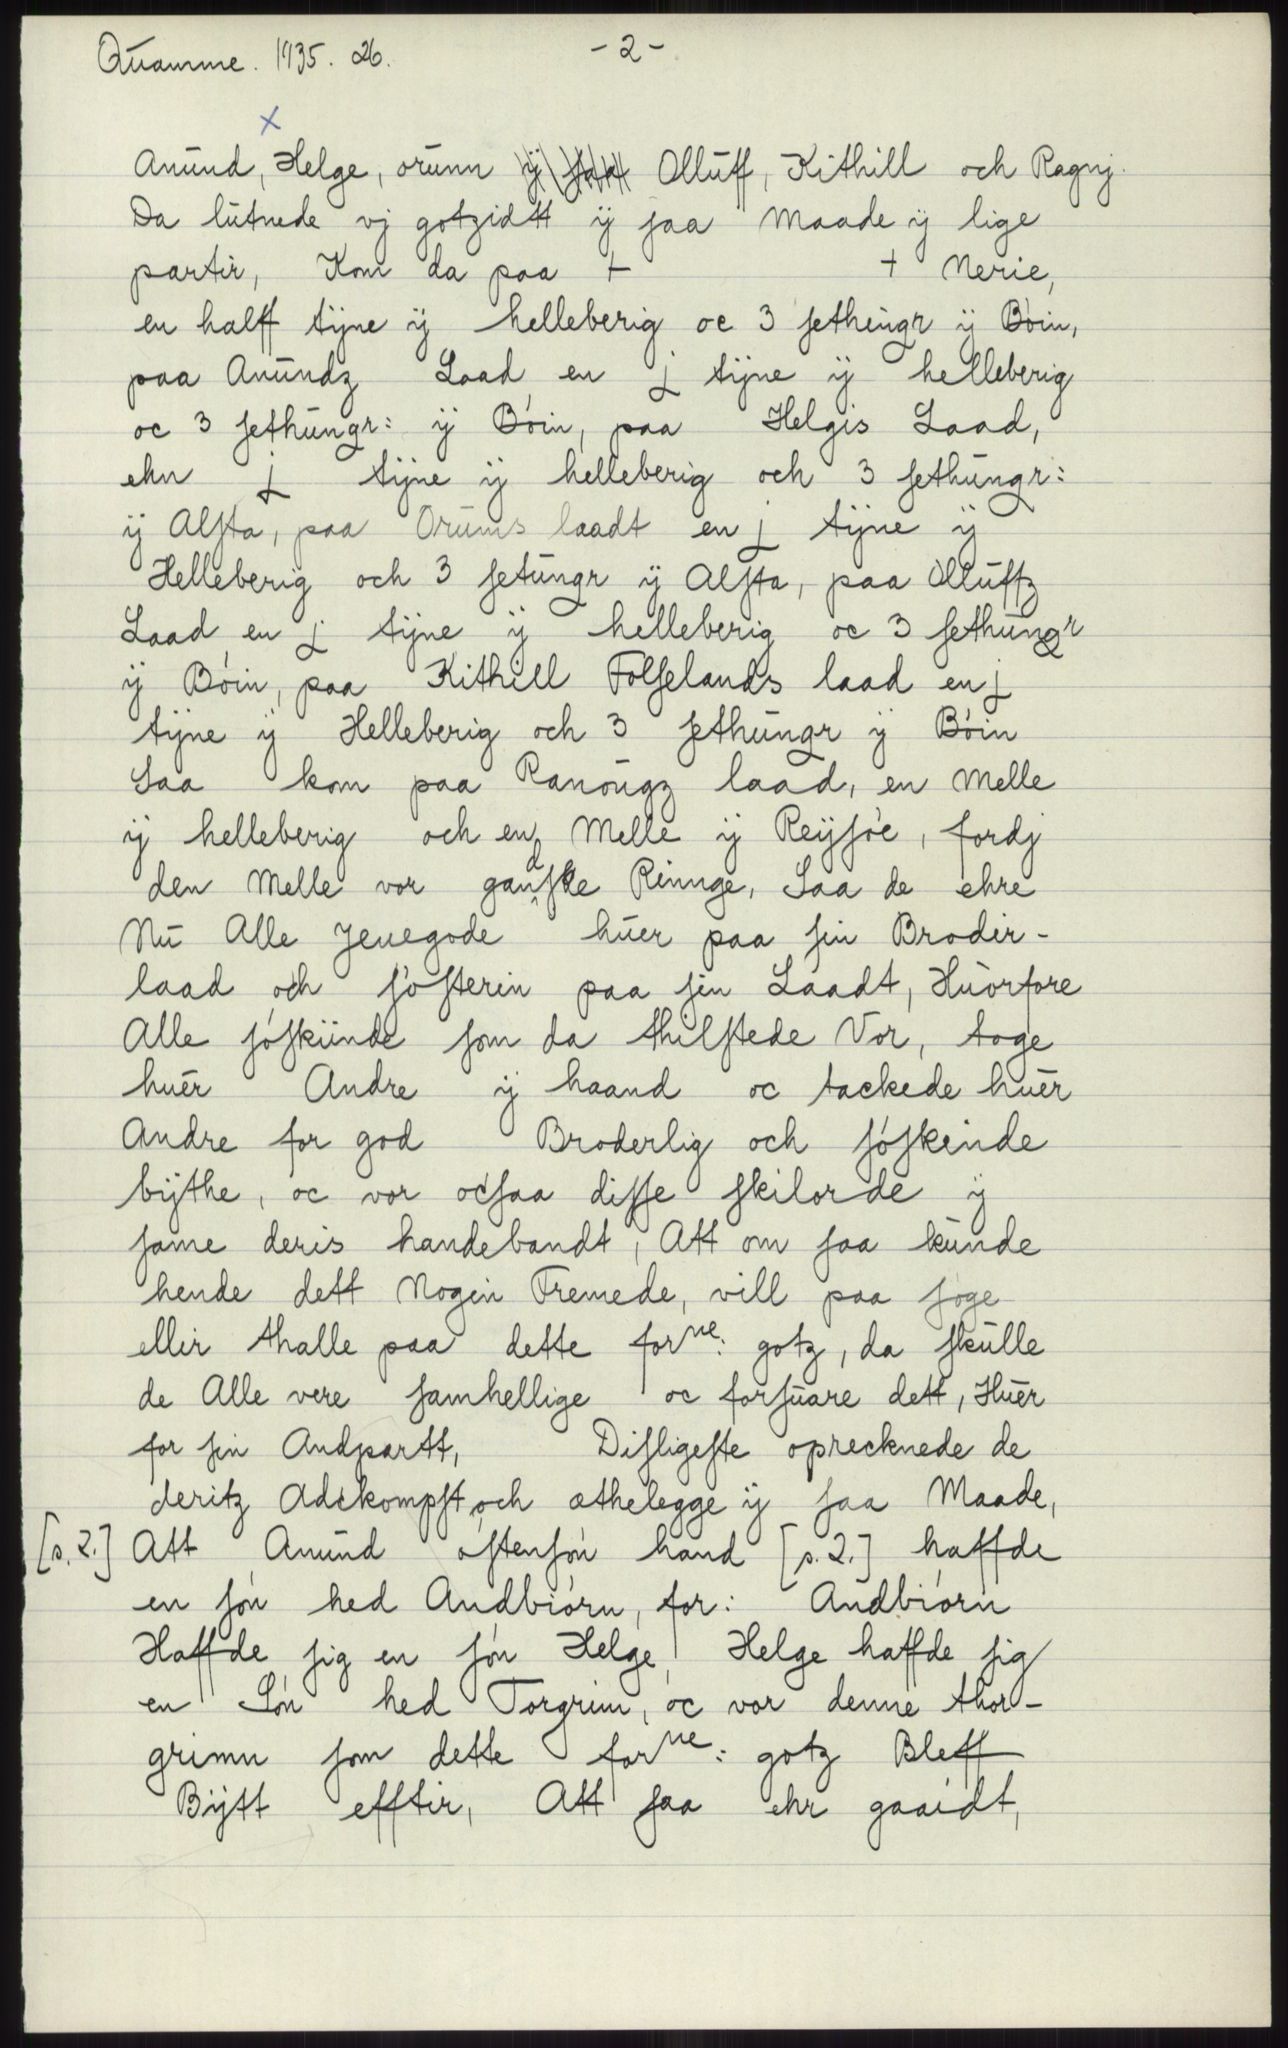 Quamme. 1935. 26.
- 2 -
x
Anund, Helge, orunn ÿ saa Olluff, Kithill och Ragnj.
Da lutnede vj gotzidtt ÿ saa Maade ÿ lige
partir, Kom da paa + + Nerie,
en halff tijne ÿ helleberig oc 3 sethingr ÿ Bóin,
paa Anundz Laad en j tijne ÿ helleberig
oc 3 sethungr: ÿ Bóin, paa Helgis Laad,
ehn j tijne ÿ helleberig och 3 sethungr:
ÿ Alsta, paa Orums laadt en j tijne ÿ
Helleberig och 3 setungr ÿ Alsta, paa Olluffz
Laad en j tijne ÿ helleberig oc 3 sethungr
ÿ Bóin, paa Kithill Folselands laad en j
tijne ÿ Helleberig och 3 sethungr ÿ Bóin
Saa kom paa Ranougz laad, en Melle
ÿ helleberig och en Melle ÿ Reÿsóe, fordj
den Melle vor gandske Rinnge, Saa de ehre
Nu Alle Jeuegode huer paa sin Brodir-
laad och sósterin paa sin Laadt, Huorfore
Alle sóskiinde som da thilstede Vor, toge
huer Andre ÿ haand oc tackede huer
Andre for god Broderlig och sóskinde
bÿthe, oc vor ocsaa disse skilorde ÿ
same deris handebandt, Att om saa kunde
hende dett Nogin Fremede, vill paa sóge
ellir thalle paa dette forne: gotz, da skulle
de Alle vere samhellige oc forsuare dett, Huer
for sin Andpartt, Disligeste oprecknede de
deritz Adckompst och æthelegge ÿ saa Maade,
[s. 2.] Att Anund óstensón hand [s. 2.] haffde
en són hed Andbiórn, for: Andbiórn
Haffde sig en són Helge, Helge haffde sig
en Són hed Torgrim, oc vor denne thor-
grimn som dette forne: gotz Bleff
Bÿtt efftir, Att saa ehr gaaidt,